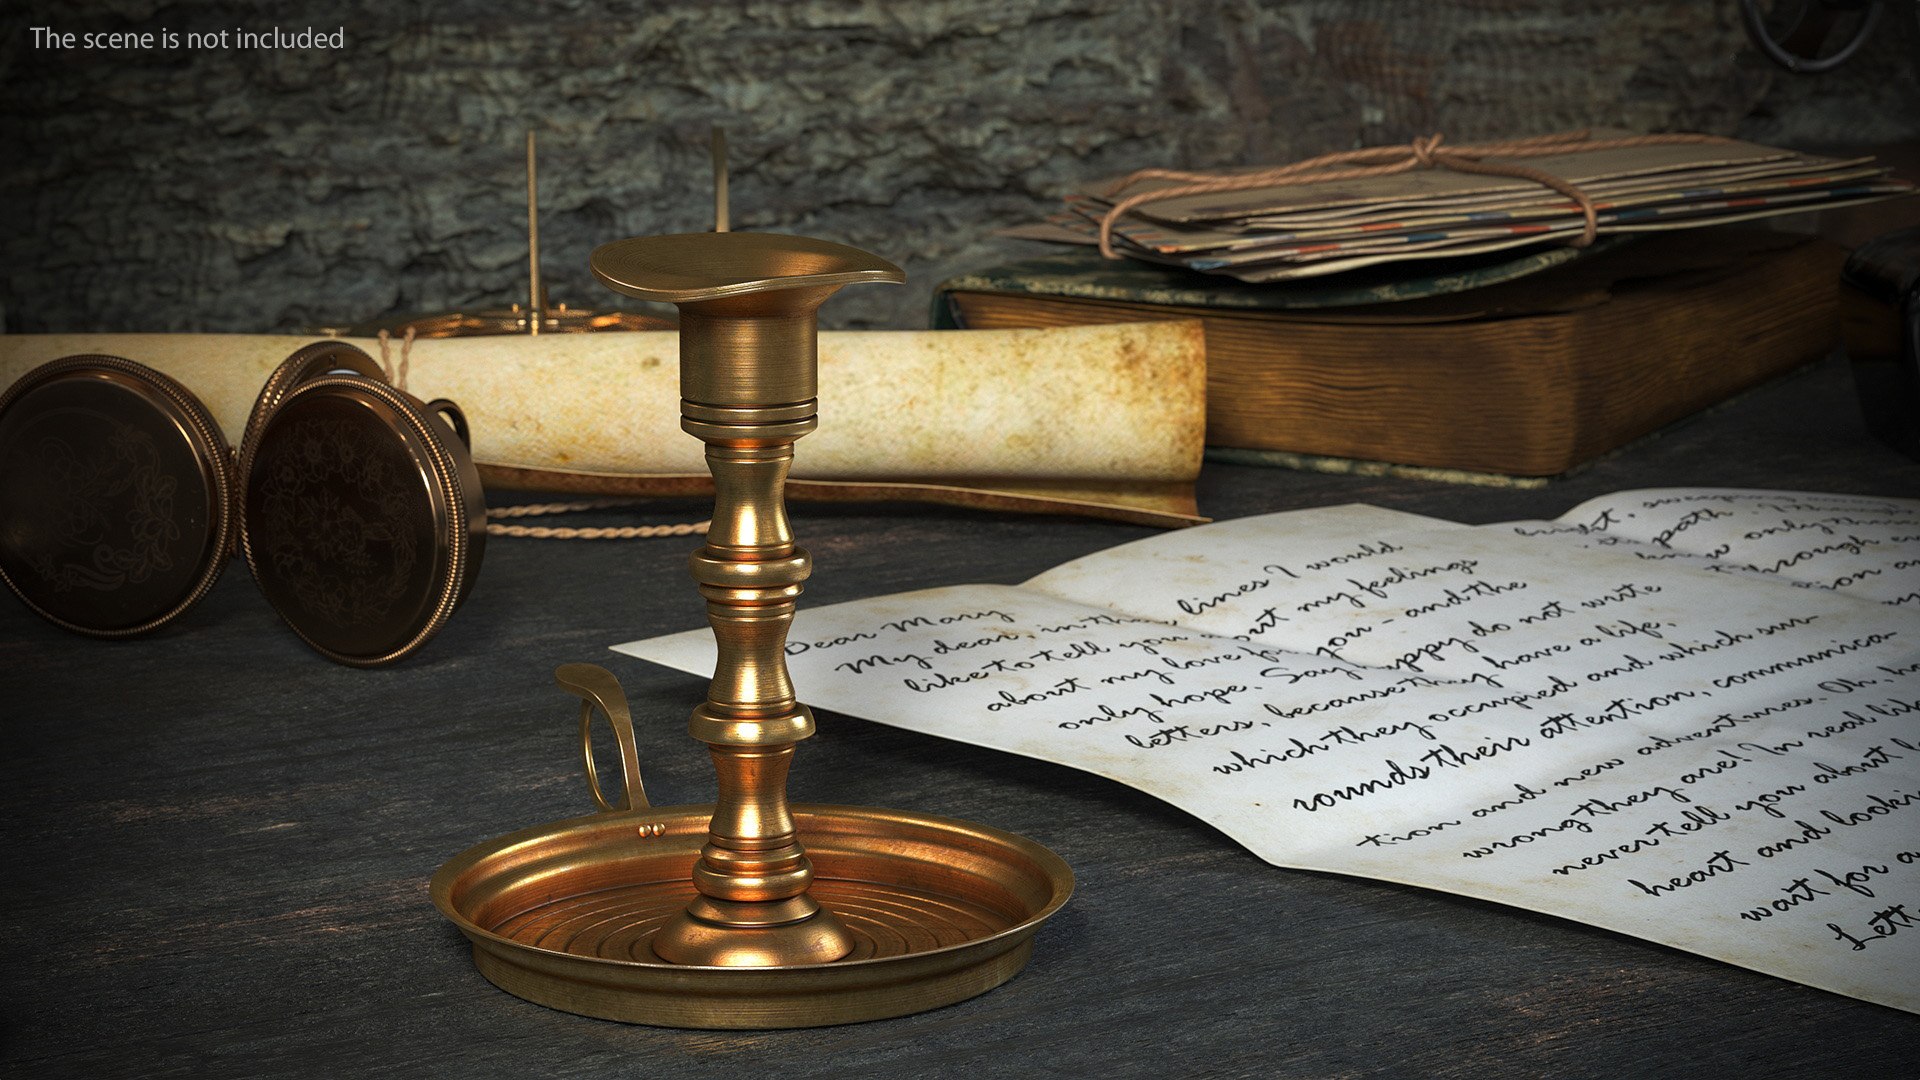 The scene is not included
Dear Mary
My dear, in lines I would
like to tell you about my feelings
about my love for you - and the
only hope. Say happy do not write
letters, because they have a life,
which they occupied and which sur-
rounds their attention, communica-
tion and new adventures. Oh, h
wrong they are! In real li
never tell you about
heart and looki
wait for a
Lett
bright,
path. I
know only
through
tion a